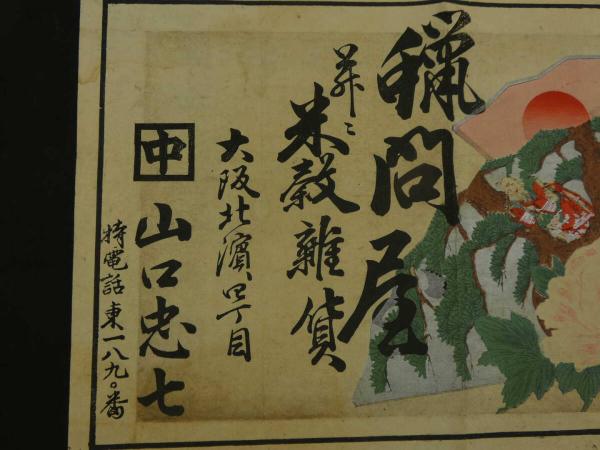 蠟問屋
并ニ
米穀雜貨
大阪北濱四丁目
中 山口忠七
特電話東一八九〇番